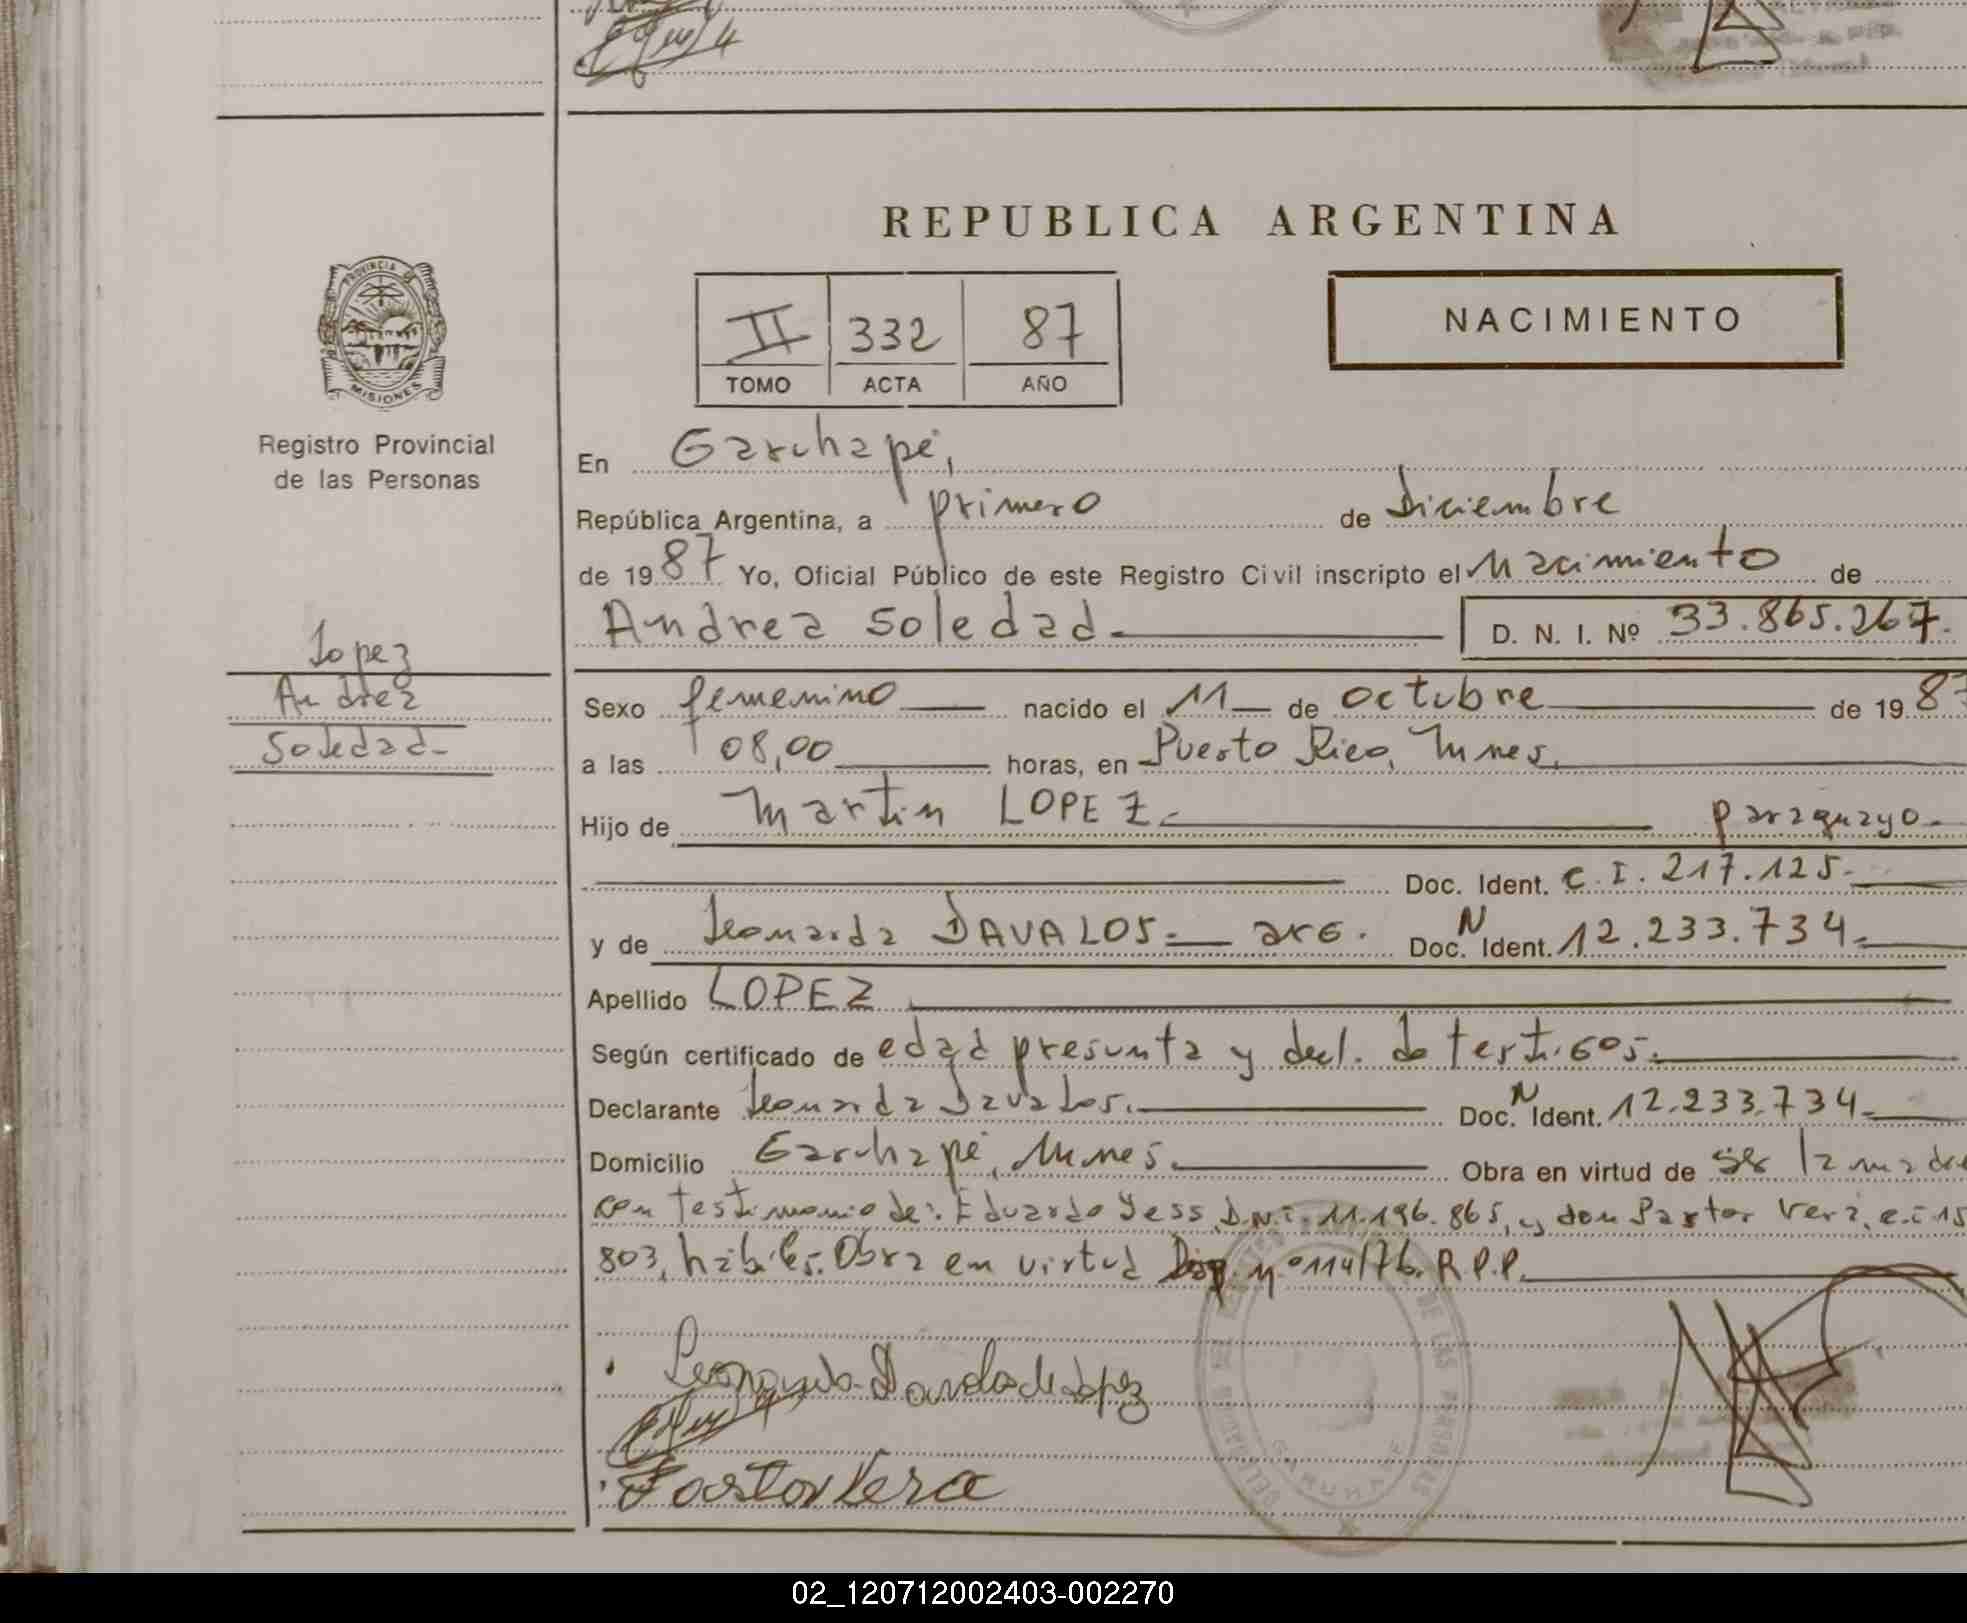 REPUBLICA ARGENTINA
PROVINCIA DE
MISIONES
Registro Provincial
de las Personas
II 332 87
TOMO ACTA AÑO
NACIMIENTO
En Garuhapé,
República Argentina, a primero de Diciembre
de 1987 Yo, Oficial Público de este Registro Civil inscripto el Nacimiento de
Andrea Soledad.- D. N. I. Nº 33.865.267.
Lopez
Andrea
Soledad-
Sexo femenino nacido el 11 de octubre de 198
a las 08,00 horas, en Puerto Rico, Mnes.
Hijo de Martin LOPEZ.- paraguayo-
Doc. Ident. C.I. 217.125.-
y de Leonarda DAVALOS.- arg. Doc. N Ident. 12.233.734.-
Apellido LOPEZ
Según certificado de edad presunta y decl. de testigos.-
Declarante Leonarda Davalos.- Doc. N Ident. 12.233.734-
Domicilio Garuhapé, Mnes.- Obra en virtud de ser la madre
con testimonio de: Eduardo Yess D.N.I. 11.196.865, y don Pastor Vera, c.i 15
803, habiles. Obra en virtud Disp. nº 114/76. R.P.P.
Leonarda Davalo de Lopez
Pastor Vera
DE LAS PERSONAS
GARUHAPE
02_120712002403-002270